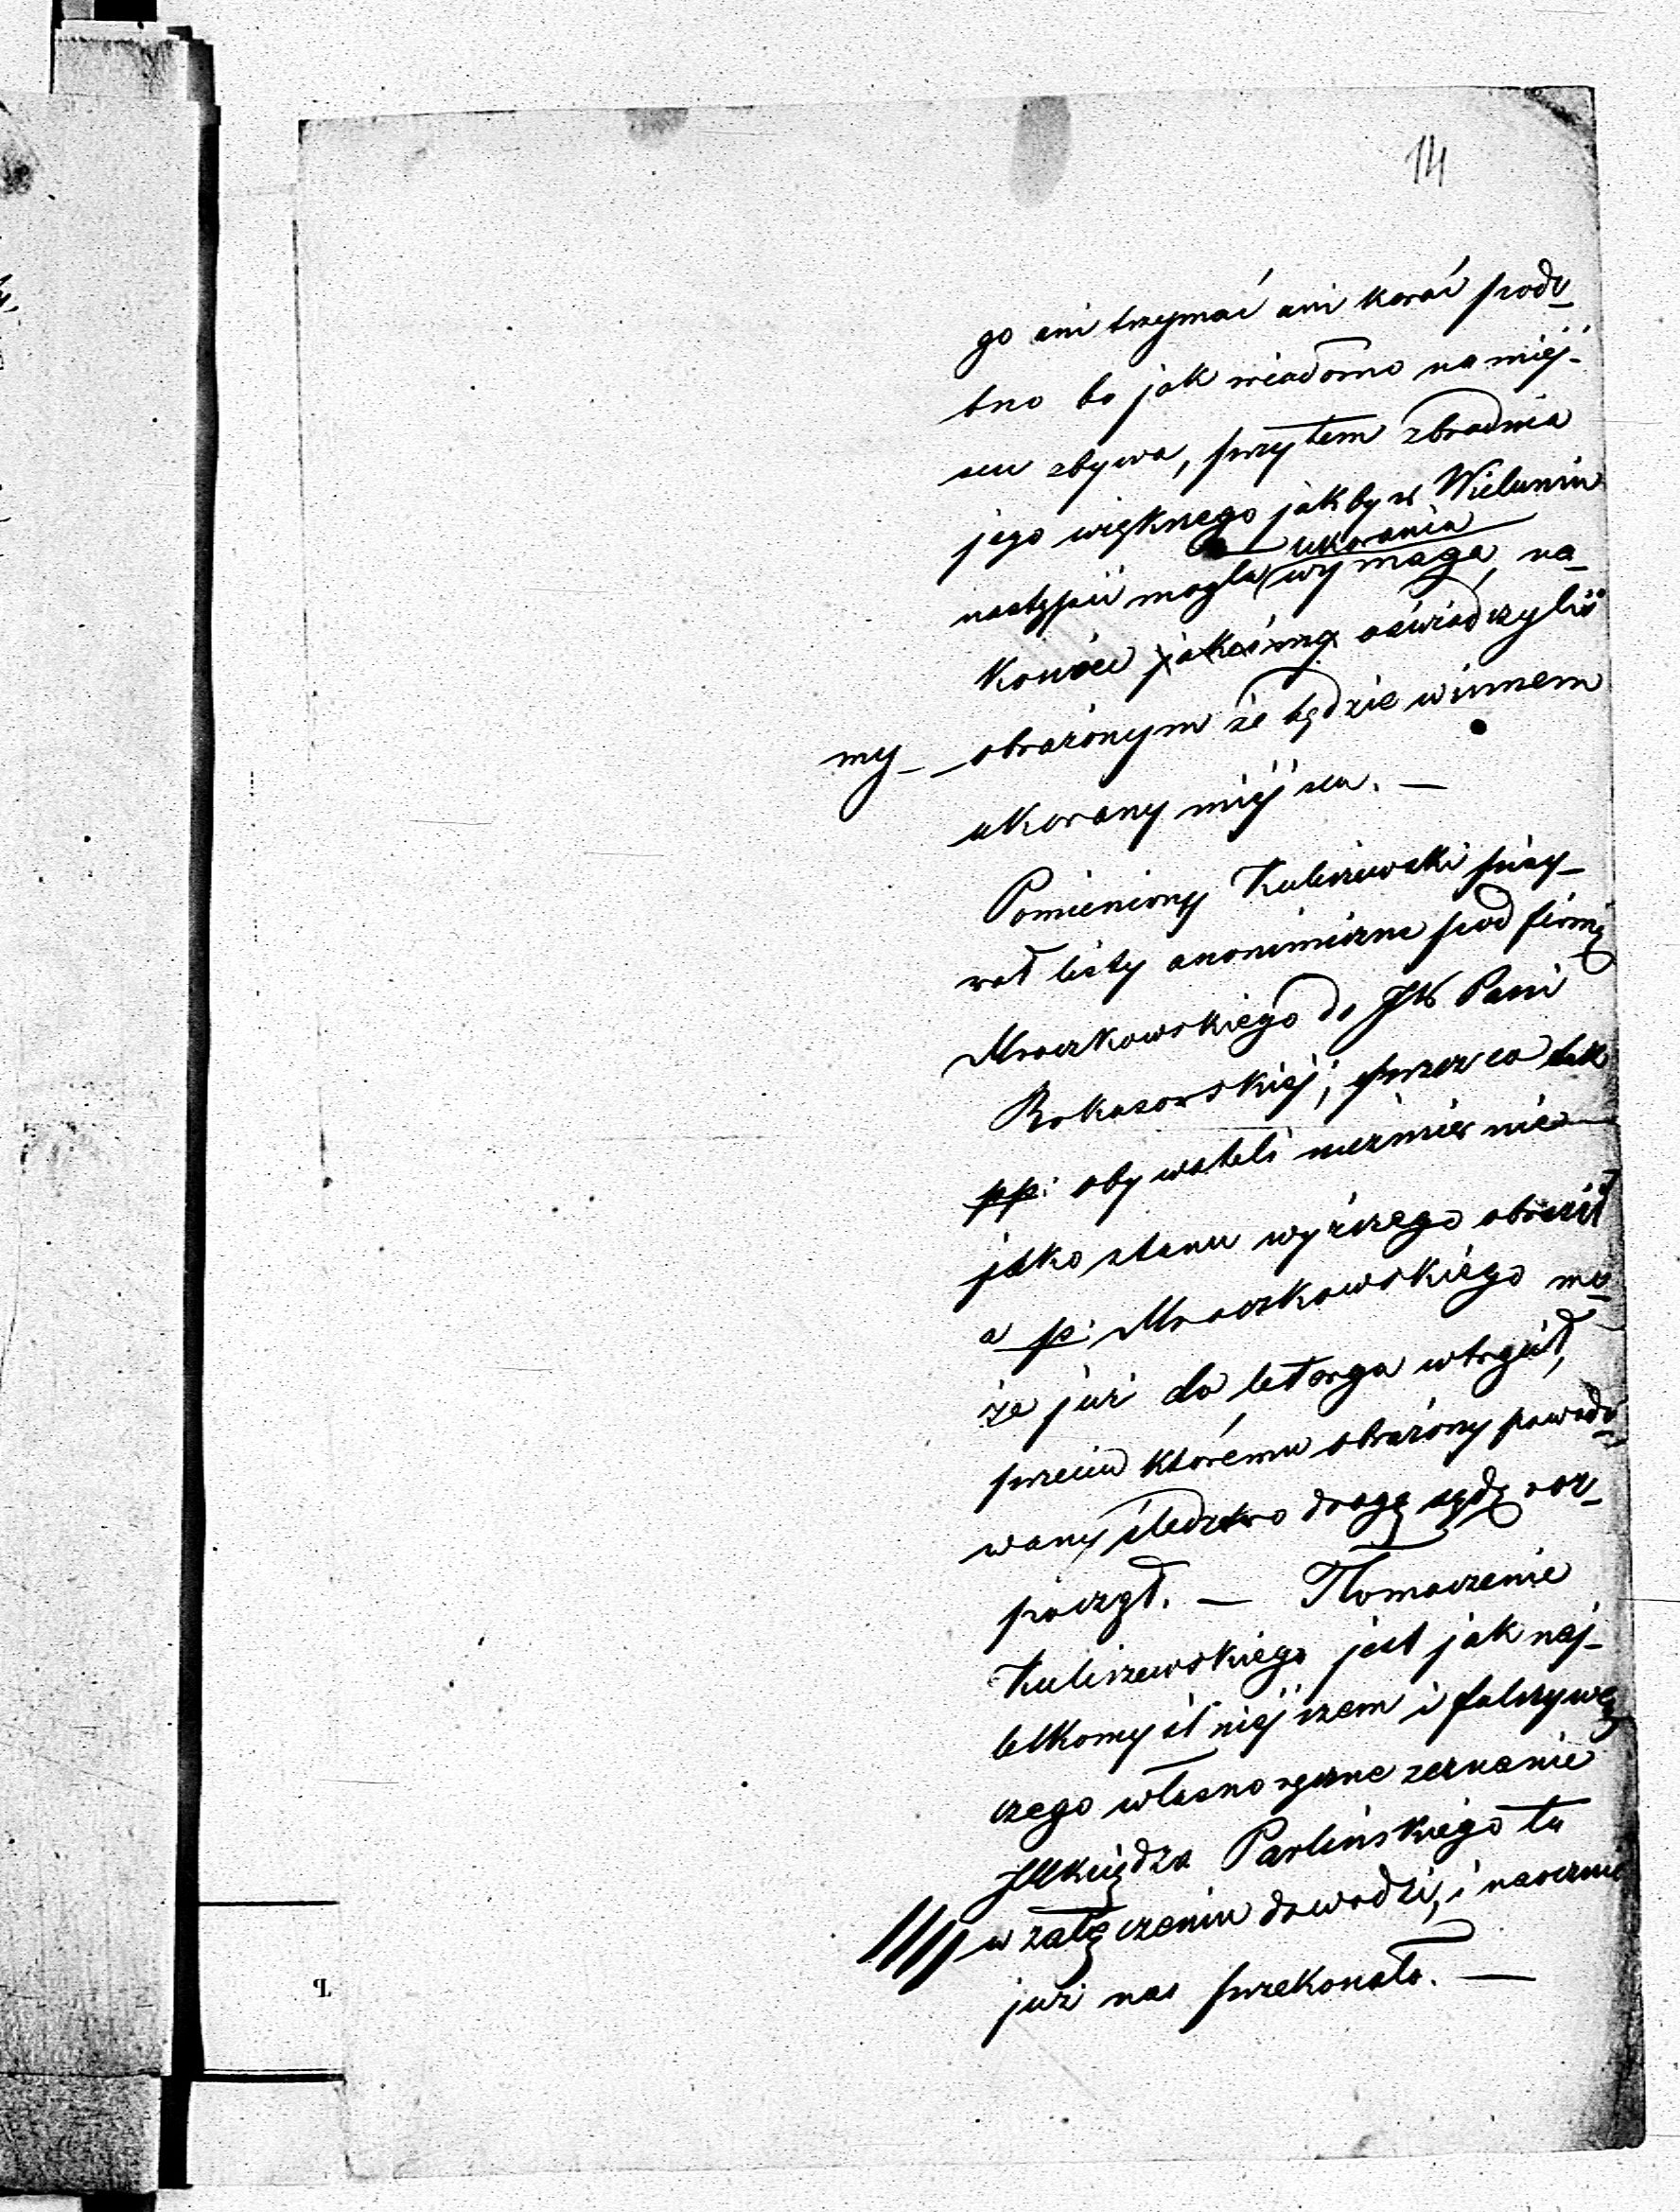 14
go ani trzymać ani karać podo_
bno bo jak wiadomo na miej-
scu zbywa, przytem zbrodnia
jego większego jakby w Wieluniu
ukarania
nastąpić mogła wymaga, na_
koniec jakeśmy oświadczyliś
my_ obrażonym że będzie winnem
ukarany miéjscu. —
Pomieniony Kuliszewski pisy_
wał listy anonimiczne pod firmą
Mroczkowskiego do JW Pani
Rokosowskiéj; przez co tak
pp: obywateli niezmiernie
jako stanu wyższego obraził
a p: Mroczkowskiego mo_
że już do letargu wtrącił,
przeciw któremu obrażony powodo_
wany śledztwo drogą sądu roz_
począł. — Tłomaczenie
Kuliszewskiego jest jak naj_
lekkomyślniéjszem i fałszywe
czego własnoręczne zeznanie
JXkiędza Parlińskiego tu
w załączeniu dowodzi, i naocznie
już nas przekonało. —